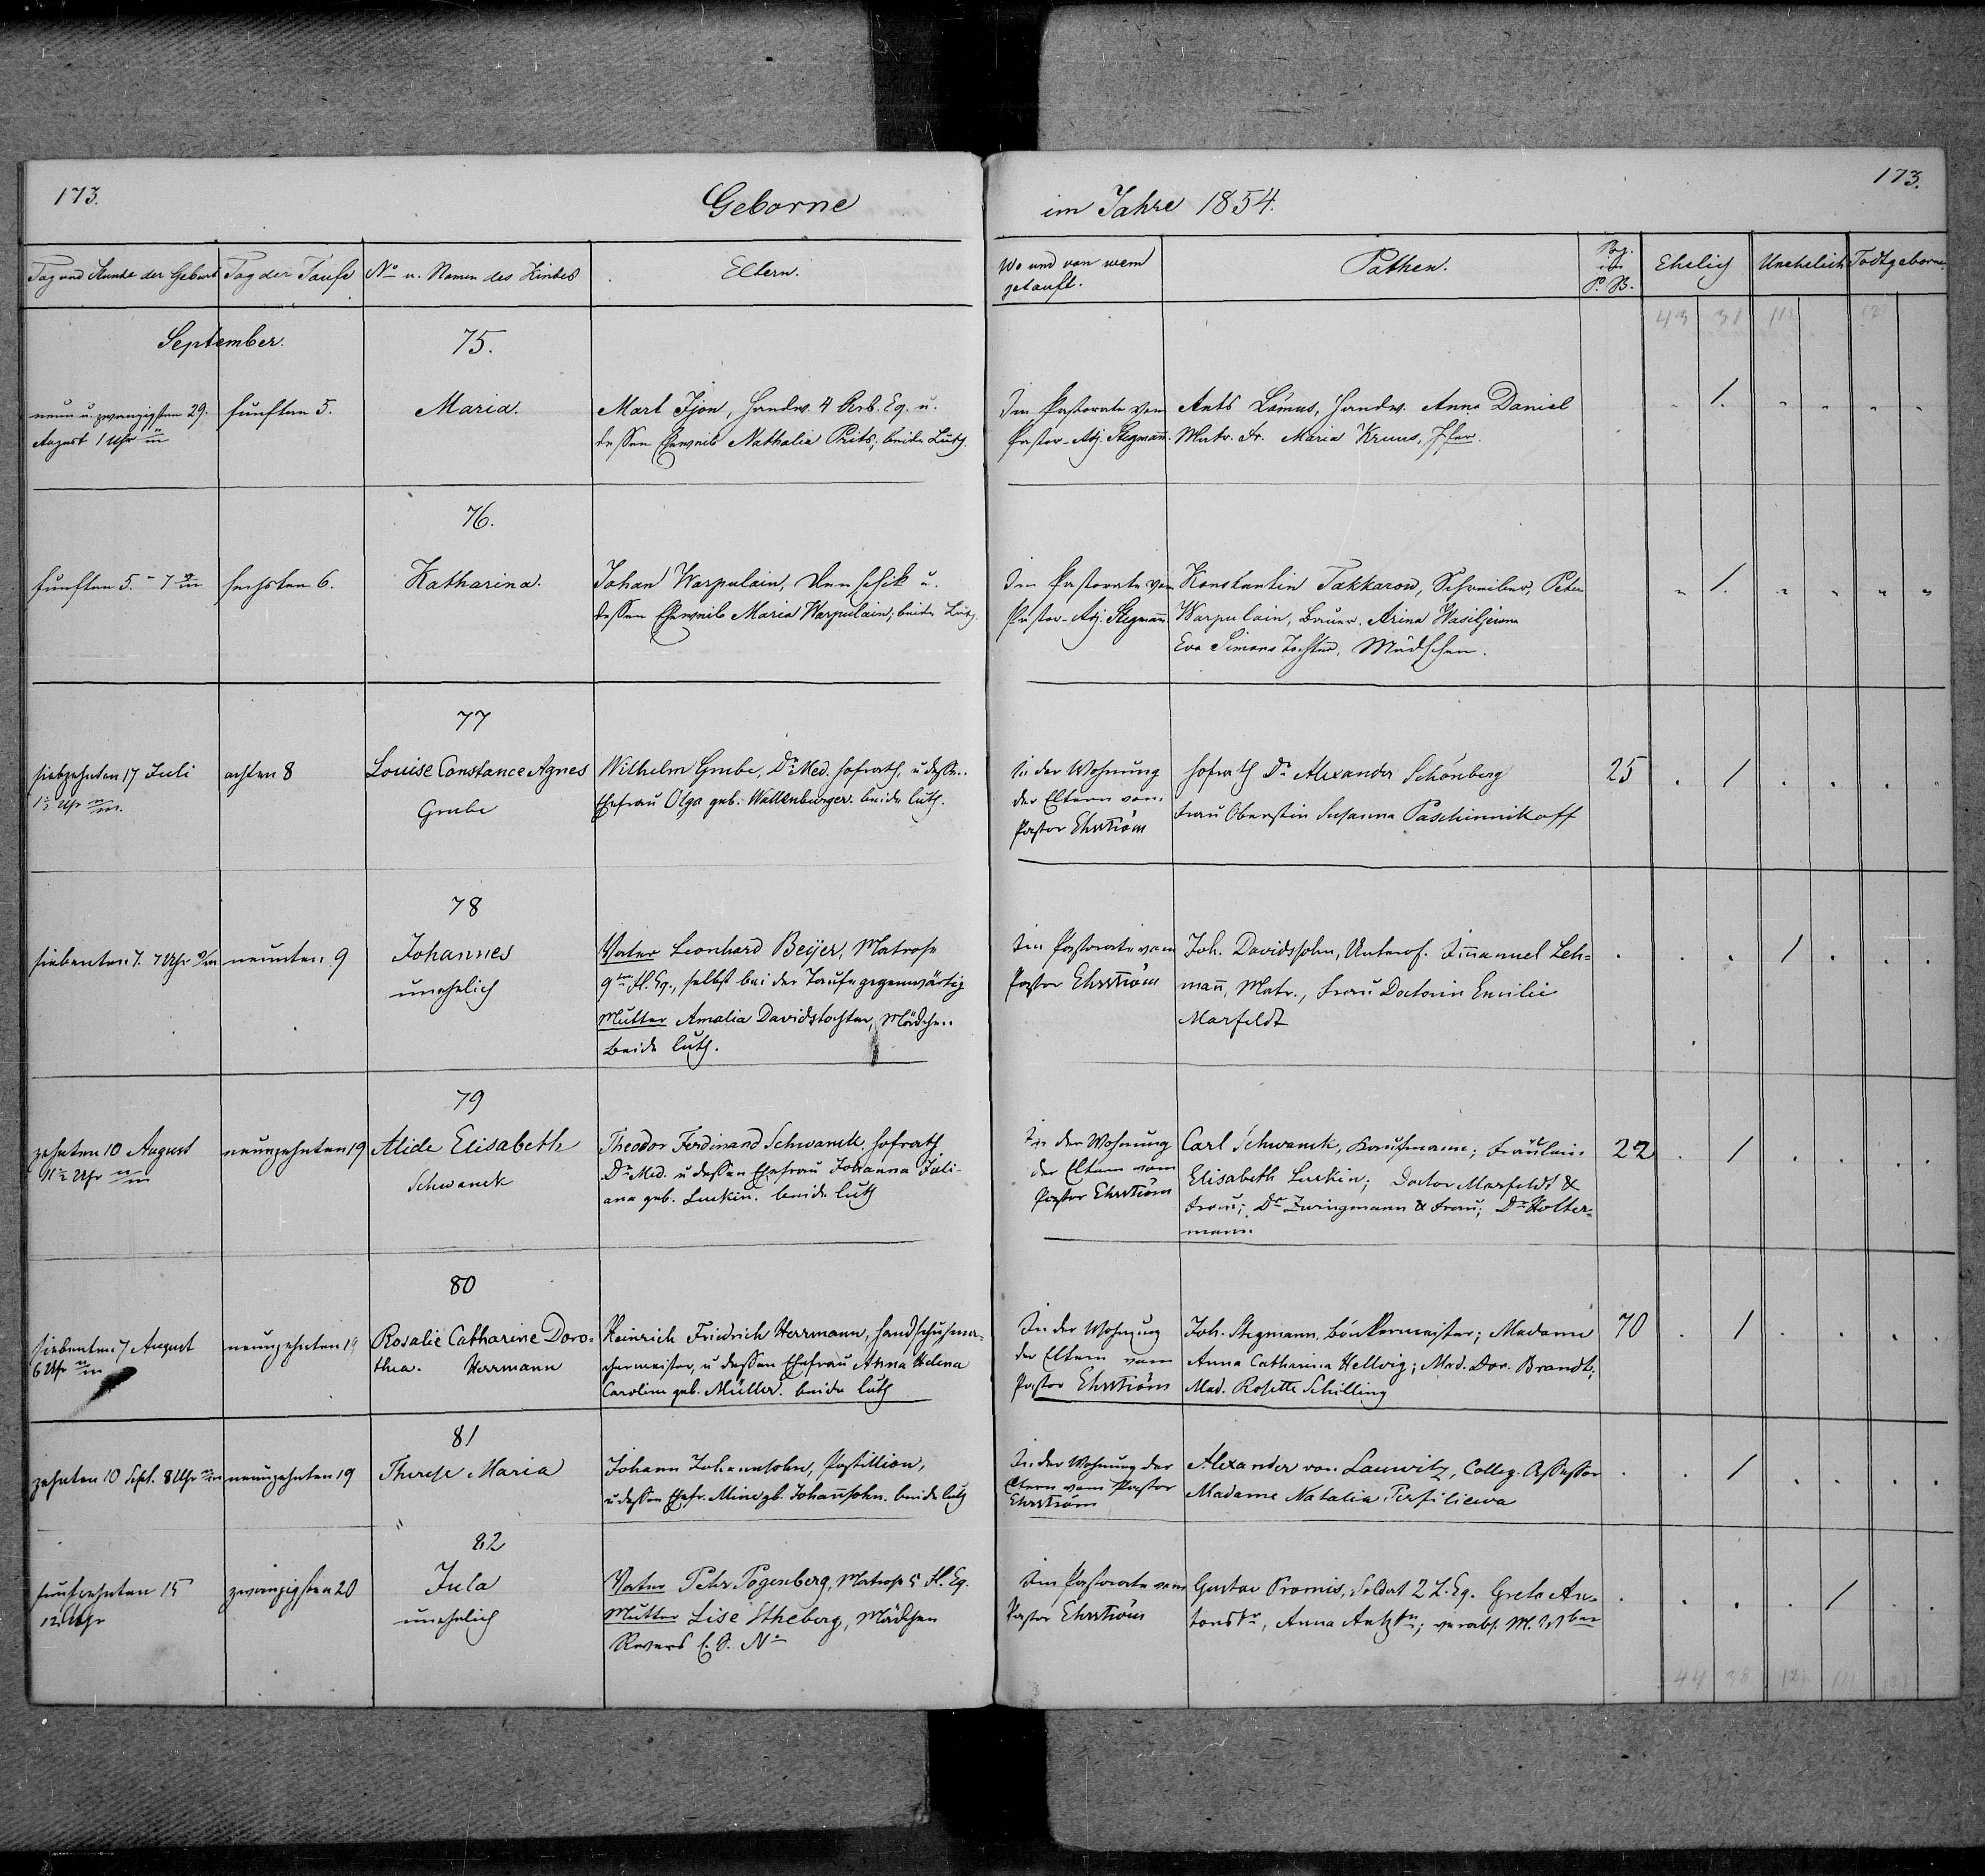 173.
Geborne
im Jahre 1854.
173.
Tag und Stunde der Geburt
Tag der Taufe
No u. Namen des Kindes
Eltern.
Wo und von wem
getauft.
Pathen.
Pag.
P. B.
Ehelich
Unehelich
Todtgeborne.
43 31 (1) (2)
September.
75.
neun u. zwanzigsten 29.
August 1 Uhr
fünften 5.
Maria.
Mart Tjon, Handw. 4 Arb. Eq. u.
dessen Eheweib Nathalia Prits; beide Luth.
Im Pastorate vom
Pastor-Adj. Stegmann.
Ants Lömus, Handw. Anna Daniel
Matr. Fr. Maria Kruus,
1.
76.
fünften 5. - 7
sechsten 6.
Katharina.
Johan Warpulain, Denschik u.
dessen Eheweib Maria Warpulain; beide Luth.
Im Pastorate vom
Pastor-Adj. Stegmann
Konstantin Takkarow, Schreiber, Peter
Warpulain, Bauer. Arina Wasiljewna
Eva Simons Tochter, Mädchen.
1.
77
siebzehnten 17 Juli
1½ Uhr
achten 8
Louise Constance Agnes
Grube
Wilhelm Grube, Dr Med. Hofrath, u dessen
Ehefrau Olga geb. Wallenburger. beide luth.
In der Wohnung
der Eltern von
Pastor Ehrström
Hofrath Dr Alexander Schönberg
Frau Oberstin Susanna Paschinnikoff
25
1
78
siebenten 7. 7 Uhr
neunten 9
Johannes
unehelich
Vater Leonhard Beijer, Matrose
9ten Fl. Eq., selbst bei der Taufe gegenwärtig
Mutter Amalia Davidstochter, Mädchen
beide luth.
Im Pastorate vom
Pastor Ehrström
Joh. Davidssohn, Unterof. Immanuel Leh=
mann, Matr., Frau Doctorin Emilie
Marfeldt
1
79
zehnten 10 August
11½ Uhr
neunzehnten 19
Alide Elisabeth
Schwanck
Theodor Ferdinand Schwanck, Hofrath
Dr Med. u dessen Ehefrau Johanna Juli-
ana geb. Luckin. beide luth
In der Wohnung
der Eltern vom
Pastor Ehrström
Carl Schwanck, Kaufmann; Fräulein
Elisabeth Luckin; Doctor Marfeldt &
Frau; Dr Zwingmann & Frau; Dr Holter=
mann.
22
1
80
siebenten 7 August
6 Uhr
neunzehnten 19
Rosalie Catharine Doro=
thea. Herrmann
Heinrich Friedrich Herrmann, Handschuhma-
chermeister, u dessen Ehefrau Anna Helena
Caroline geb. Müller. beide luth
In der Wohnung
der Eltern vom
Pastor Ehrström
Joh. Stegmann, Bönkermeister; Madame
Anna Catharina Hellwig; Mad. Dor. Brandt;
Mad. Rosette Schilling
70
1
81
zehnten 10 Sept. 8 Uhr
neunzehnten 19
Therese Maria
Johann Johannsohn, Postillion,
u dessen Ehefr. Mine gb. Johannsohn. beide luth
In der Wohnung der
Eltern vom Pastor
Ehrström
Alexander von Lauwitz, Colleg. Assessor
Madame Natalia Perfiliewa
1
82
funfzehnten 15
12 Uhr
zwanzigsten 20
Jula
unehelich
Vater Pehr Pogenberg, Matrose 5 Fl. Eq.
Mutter Lise Stheberg, Mädchen
Revers No
Im Pastorate vom
Pastor Ehrström
Gustav Promis, Soldat 2 L. Eq. Greta An=
tonstr, Anna Antztr; verabs. M.
1
44 38 (2) (1) (2)